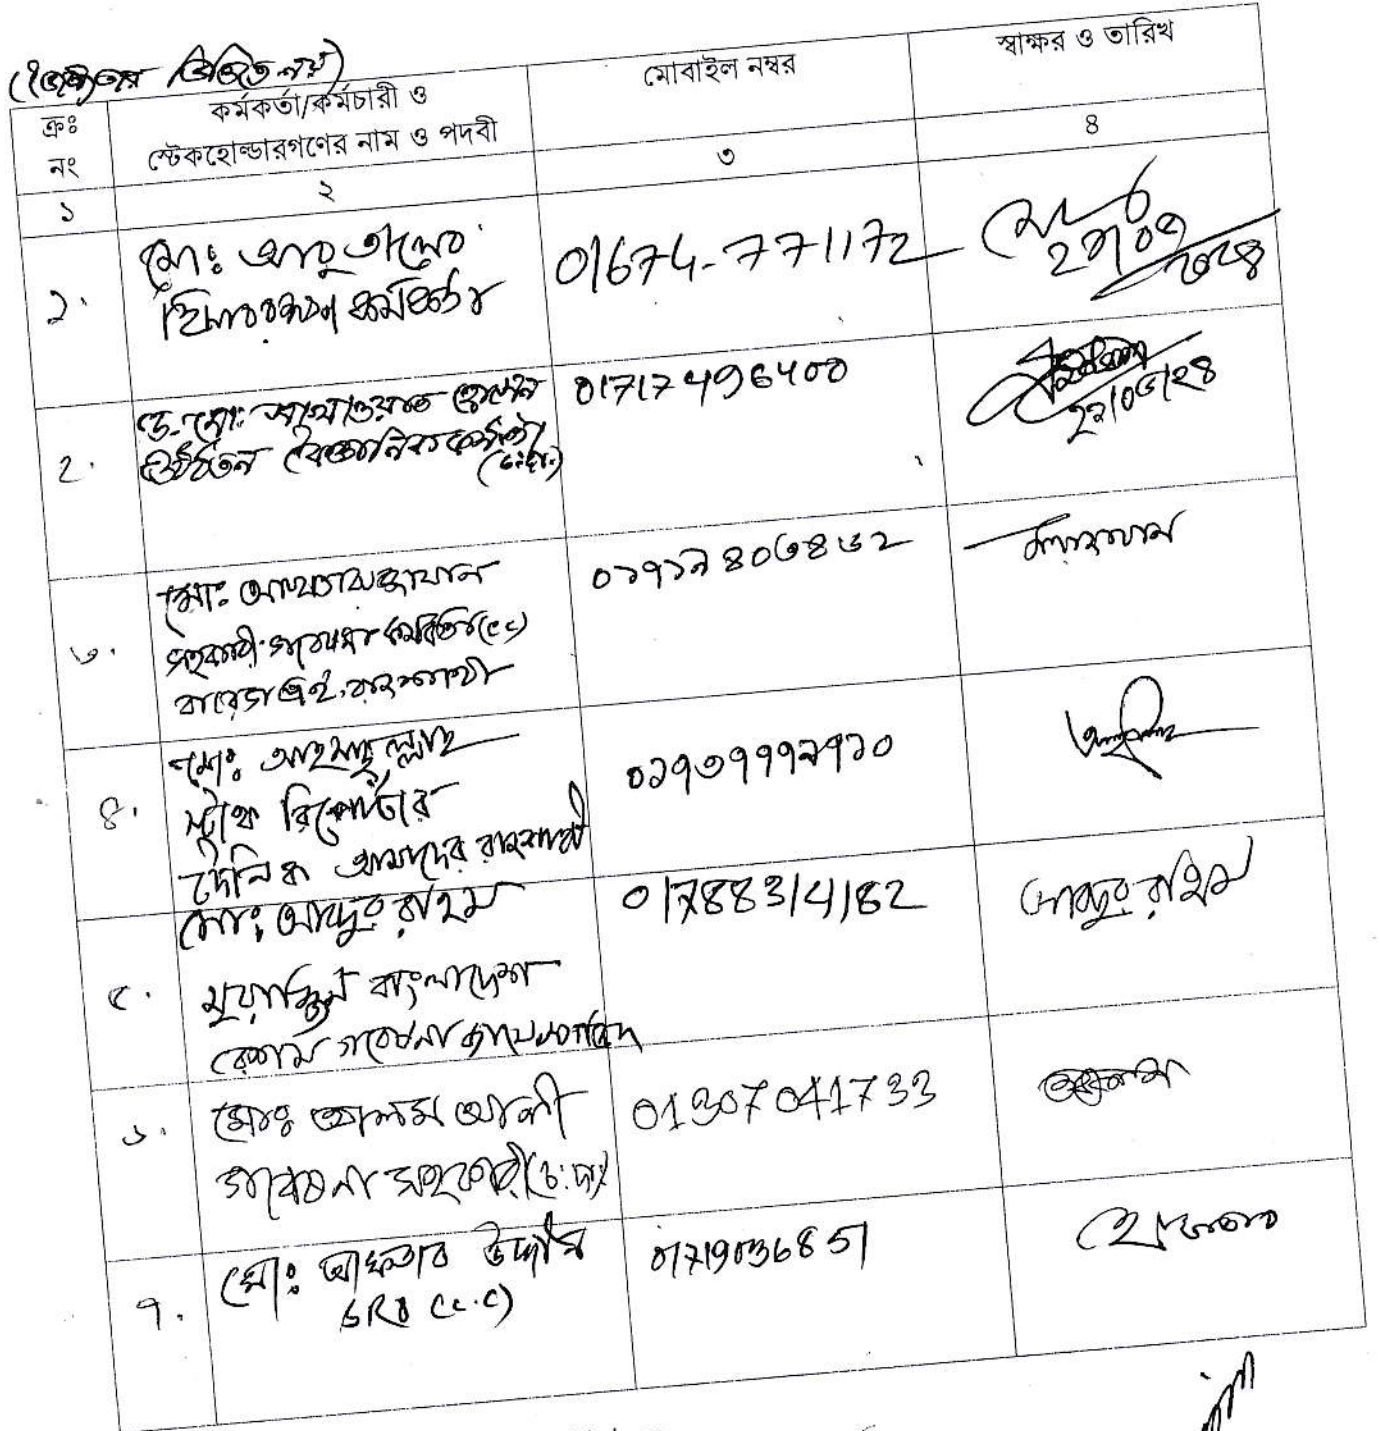 ক্রঃ নং
কর্মকর্তা/কর্মচারী ও
স্টেকহোল্ডারগণের নাম ও পদবী
মোবাইল নম্বর
স্বাক্ষর ও তারিখ
১
২
৩
৪
১.
মোঃ আবু তালেব
হিসাবরক্ষণ কর্মকর্তা
01674-771172
২.
ড. মোঃ সাখাওয়াত হোসেন
ঊর্ধ্বতন বৈজ্ঞানিক কর্মকর্তা
(চঃদাঃ)
01717496400
২৯/০৩/২৪
৩.
মোঃ আখতারুজ্জামান
সহকারী গবেষনা কর্মকর্তা (cc)
রাজশাহী
০১৭১৯৪০৩৪৬২
৪.
মোঃ আহসাদুল্লাহ
স্টাফ রিপোর্টার
দৈনিক আমাদের রাজশাহী
০১৭৩৭৭৭১৭১০
৫.
মোঃ আব্দুর রহিম
মুয়াজ্জিন বাংলাদেশ
রেশম গবেষনা
01788314182
আবদুর রহিম
৬.
মোঃ আলম আলী
গবেষনা সহকারী (চ:দা)
01307041733
৭.
মোঃ আফতাব উদ্দীন
SRO (c.c)
01719036851